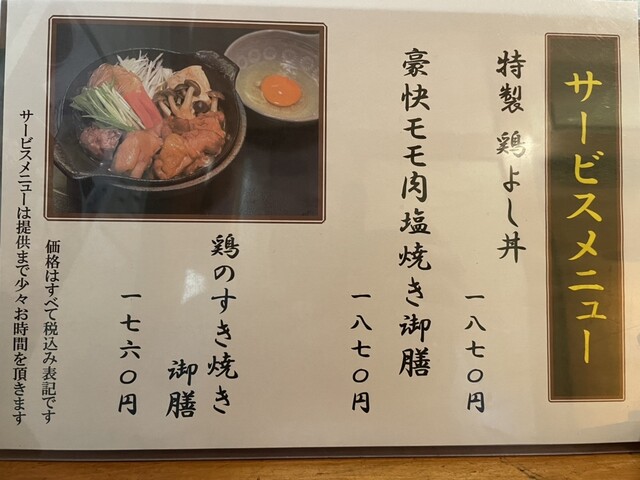 サービスメニュー
特製 鶏よし丼
一八七〇円
豪快モモ肉塩焼き御膳
一八七〇円
鶏のすき焼き
御膳
一七六〇円
価格はすべて税込み表記です
サービスメニューは提供まで少々お時間を頂きます